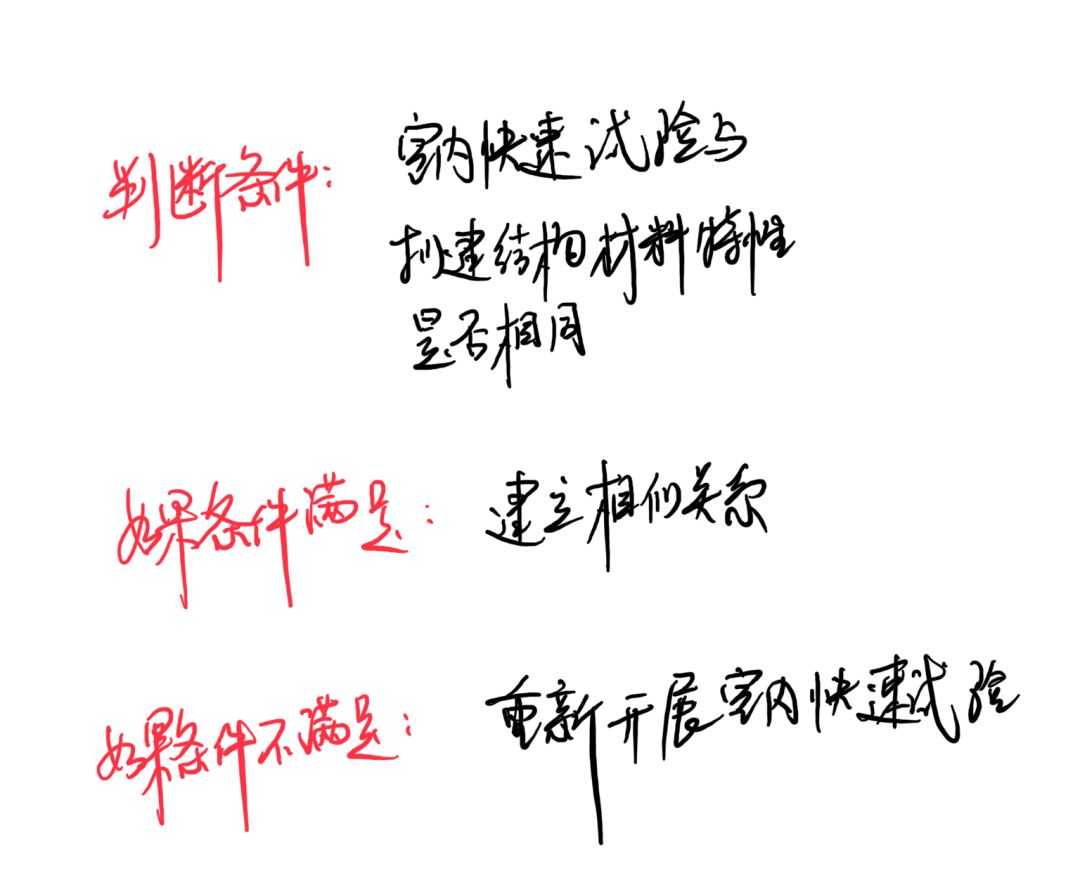 判断条件: 室内快速试验与
拟建结构材料特性
是否相同
如果条件满足: 建立相似关系
如果条件不满足: 重新开展室内快速试验